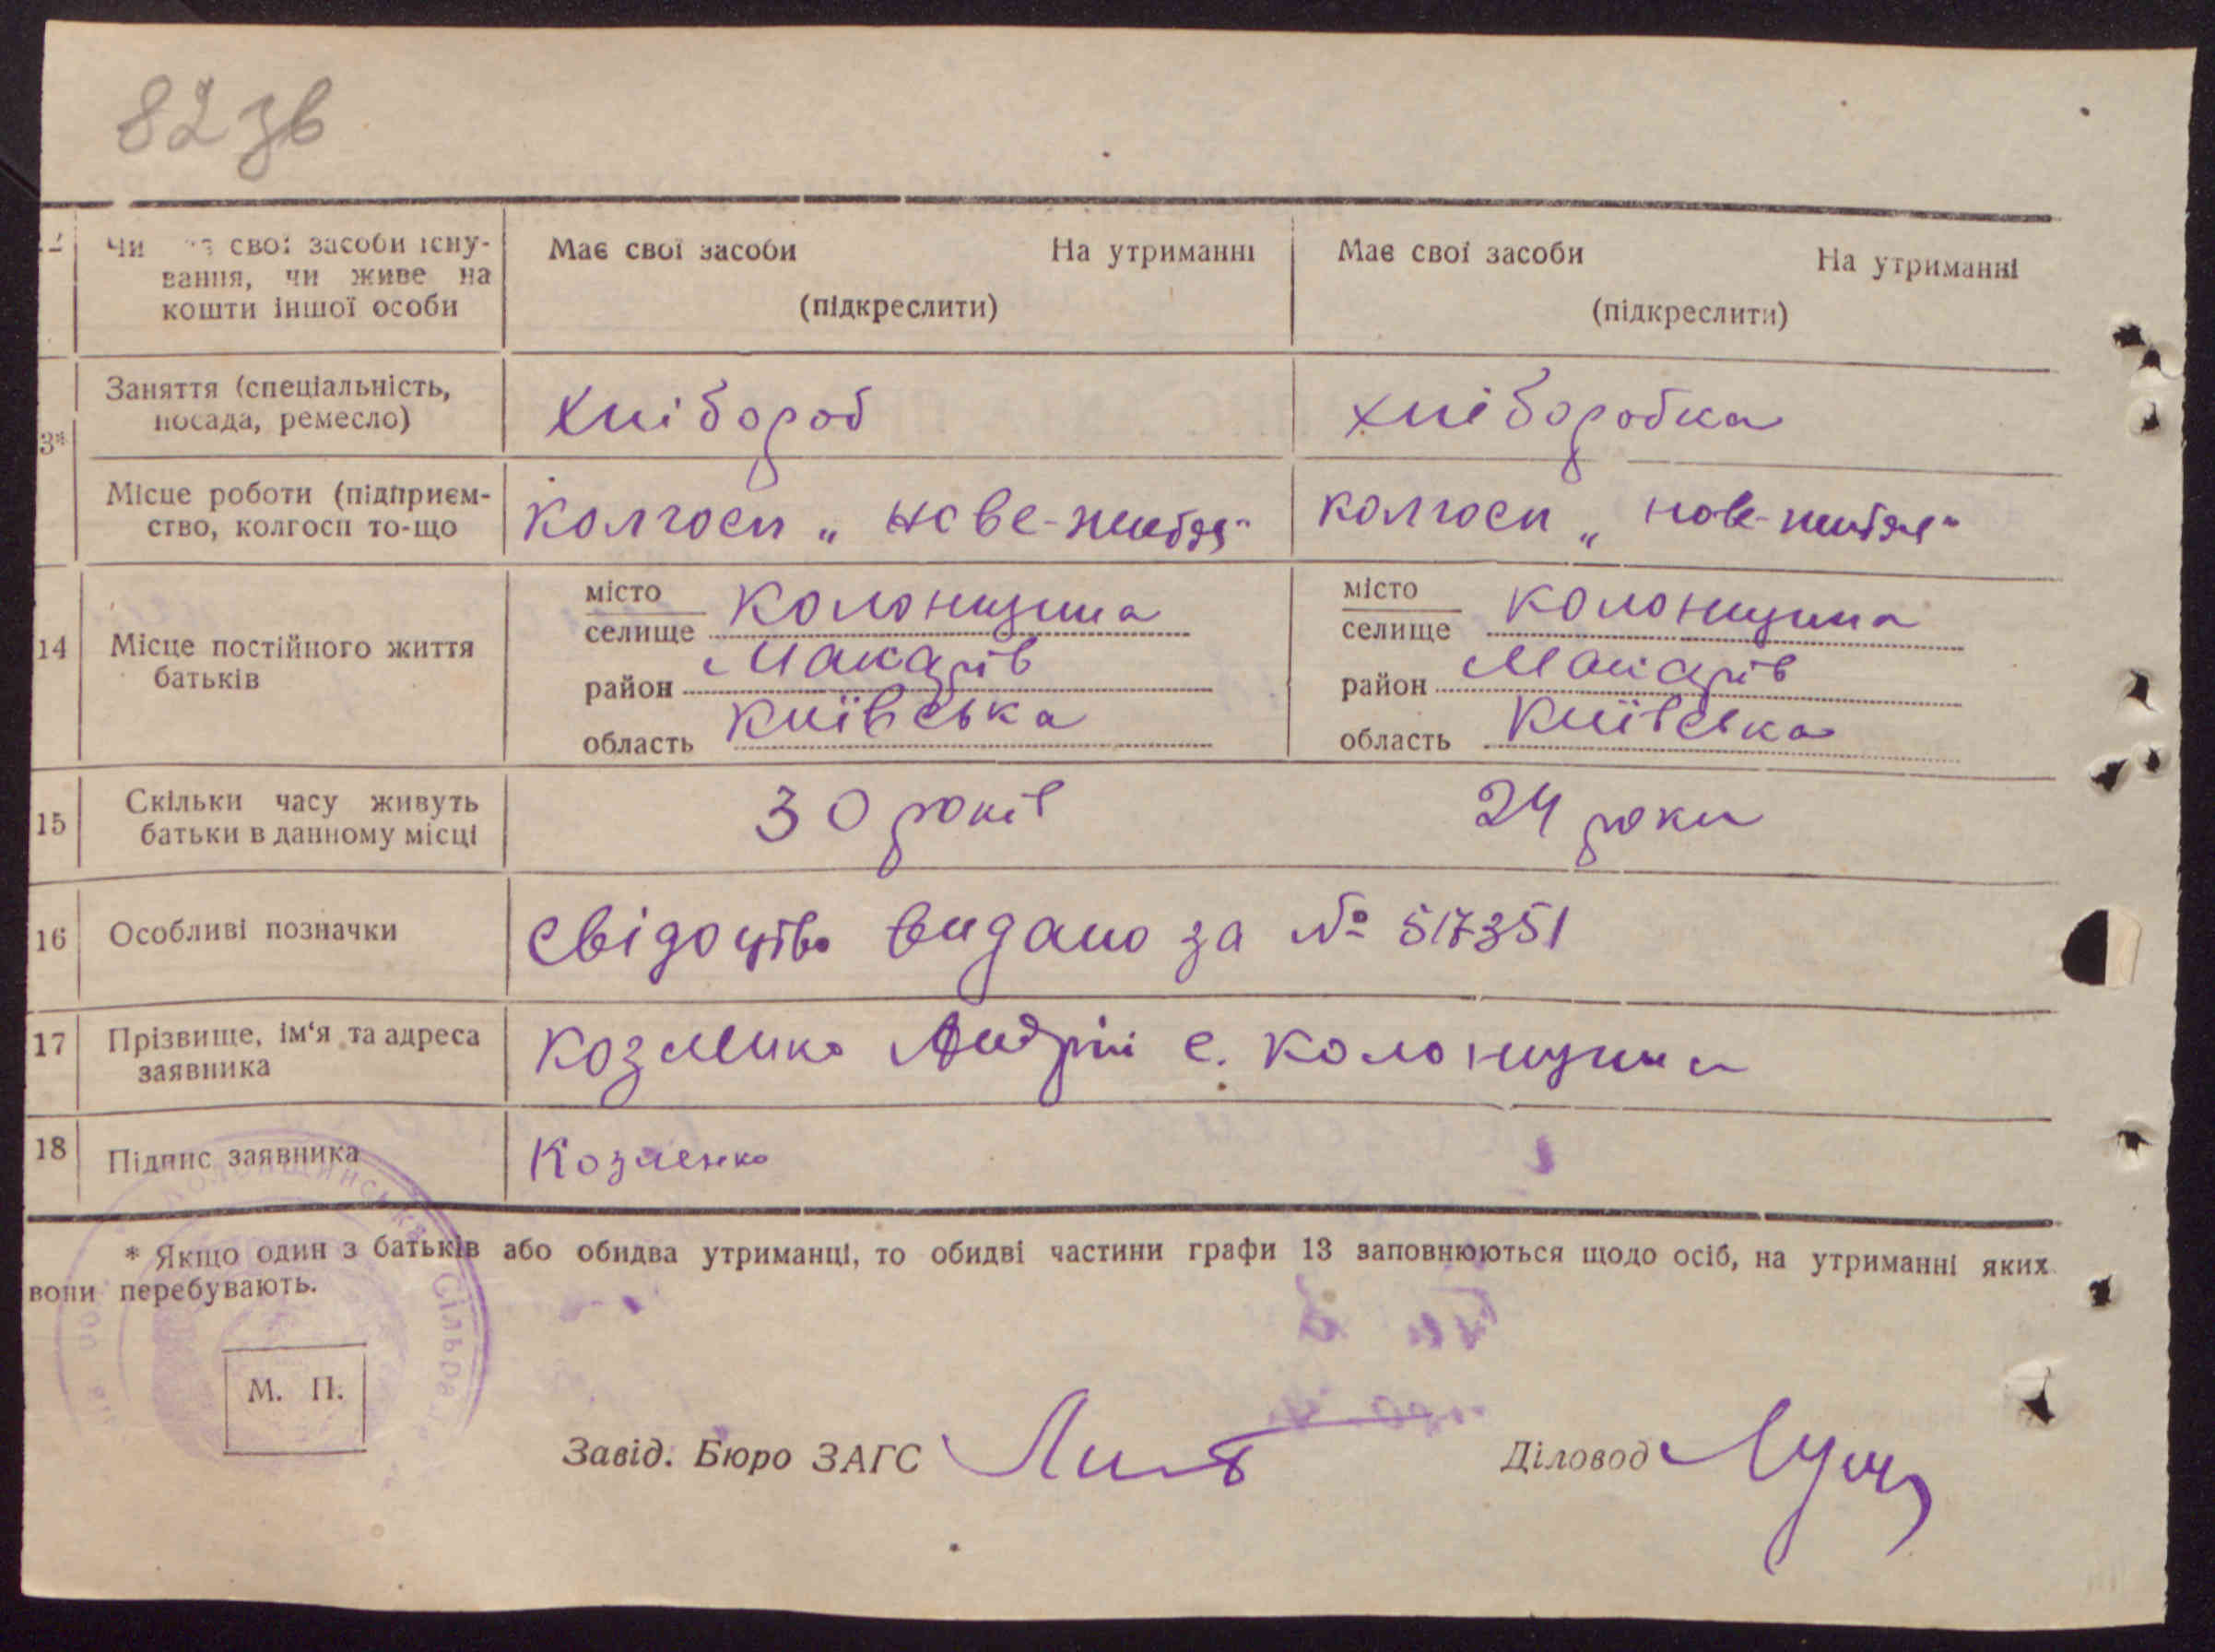 82 зв
Чи свої засоби існу-
вання, чи живе на
кошти іншої особи
Має свої засоби На утриманні
(підкреслити)
Має свої засоби На утриманні
(підкреслити)
3*
Заняття (спеціальність,
посада, ремесло)
хлібороб
хліборобка
Місце роботи (підприєм-
ство, колгосп то-що
колгосп „нове-життя"
колгосп „нове-життя"
14
Місце постійного життя
батьків
місто
селище Колонщина
район Макарів
область Київська
місто
селище Колонщина
район Макарів
область Київська
15
Скільки часу живуть
батьки в данному місці
30 років
24 роки
16 Особливі позначки
свідоцтво видано за № 517351
17
Прізвище, ім'я та адреса
заявника
Андрій с. Колонщина
18 Підпис заявника
* Якщо один з батьків або обидва утриманці, то обидві частини графи 13 заповнюються щодо осіб, на утриманні яких
вони перебувають.
Сільрада
М. П.
Завід. Бюро ЗАГС
Діловод